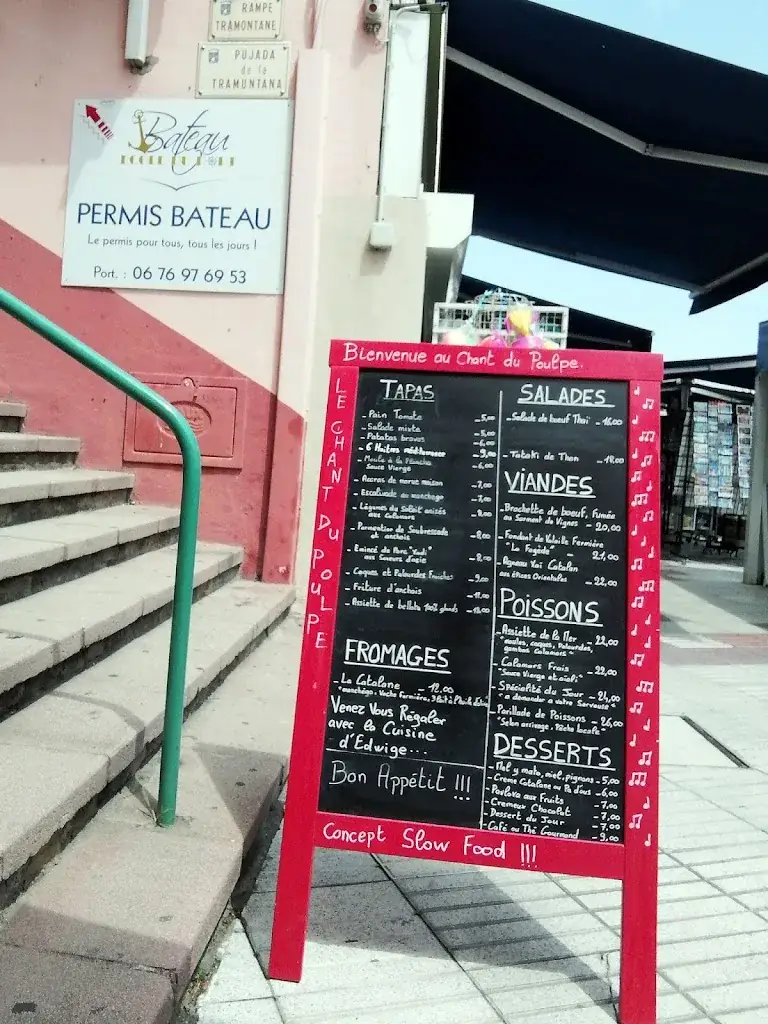 RAMPE
TRAMONTANE
PUJADA
de la
TRAMUNTANA
Bateau
PERMIS BATEAU
Le permis pour tous, tous les jours !
Port. : 06 76 97 69 53
Bienvenue au Chant du Poulpe.
LE CHANT DU POULPE
TAPAS
- Pain Tomate - 5,00
- Salade mixte - 5,00
- Patatas bravas - 6,00
- 6 Huîtres méditerranée - 9,00
- Moule à la Plancha - 6,00
Sauce Vierge
- Accras de morue maison - 7,00
- Escalivade au manchego - 7,00
- Légumes du Soleil anisés - 8,00
aux Calamars
- Parmentier de Soubressade - 8,00
et anchois
- Emincé de Porc "Yadi" - 8,00
aux Saveurs d'asie
- Coques et Palourdes Fraîches - 9,00
- Friture d'anchois - 11,00
- Assiette de bellota 100% glands - 13,00
FROMAGES
- La Catalane - 12,00
"manchégo, Vache Fermière,
Venez Vous Régaler
avec la Cuisine
d'Edwige...
Bon Appétit !!!
SALADES
- Salade de boeuf Thaï - 16,00
- Tataki de Thon - 19,00
VIANDES
- Brochette de boeuf, Fumée
au Sarment de Vignes - 20,00
- Fondant de Volaille Fermière
"La Fagède" - 21,00
- Agneau Xai Catalan
aux épices Orientales - 22,00
POISSONS
- Assiette de la Mer - 22,00
"moules, coques, Palourdes,
gambas Calamars"
- Calamars Frais - 22,00
"Sauce Vierge et aïoli"
- Spécialité du Jour - 24,00
"a demander a votre Serveuse"
- Parillade de Poissons - 26,00
"Selon arrivage, Pêche locale"
DESSERTS
- Mel y mato, miel, pignons - 5,00
- Creme Catalane ou Pa d'ous - 6,00
- Pavlova aux Fruits - 7,00
- Cremeux Chocolat - 7,00
- Dessert du Jour - 7,00
- Café ou Thé Gourmand - 9,00
Concept Slow Food !!!